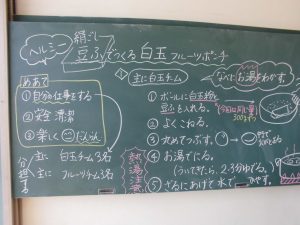 ヘルシー
絹ごし
豆ふでつくる白玉フルーツポーチ
めあて
① 自分の仕事をする
② 安全 清潔
③ 楽しく
分担する
主に 白玉チーム3名
主に フルーツチーム3名
熱湯注意
① 主に白玉チーム
なべにお湯をわかす。
① ボールに白玉粉と
豆ふを入れる。
② よくこねる。
③ 丸めてつぶす。
④ お湯でにる。
(ういてきたら、2~3分ゆでる。)
⑤ ざるにあげて水で ひやす。